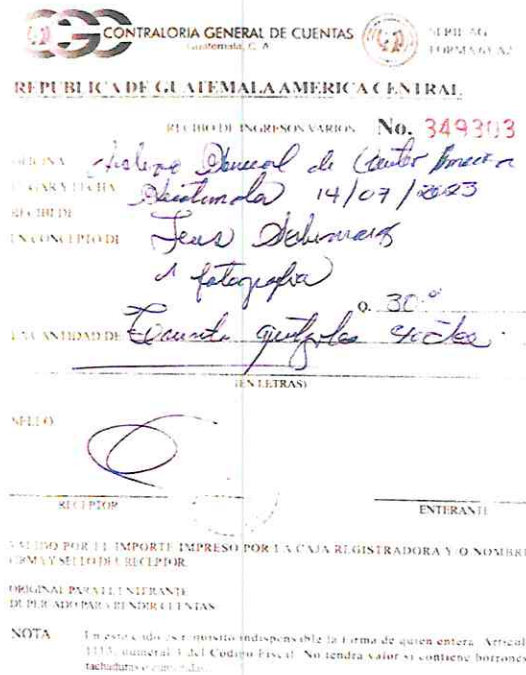 CONTRALORIA GENERAL DE CUENTAS
Guatemala, C. A.
SERIE AG
FORMA 63-A2
REPUBLICA DE GUATEMALA AMERICA CENTRAL
RECIBO DE INGRESOS VARIOS No. 349303
OFICINA General de Centro
LUGAR Y FECHA Guatemala 14/07/2023
RECIBI DE
EN CONCEPTO DE
1 fotografia
Q. 30.
LA CANTIDAD DE quetzales
(EN LETRAS)
SELLO
RECEPTOR ENTERANTE
VALIDO POR EL IMPORTE IMPRESO POR LA CAJA REGISTRADORA Y O NOMBRE
FIRMA Y SELLO DEL RECEPTOR
ORIGINAL PARA EL ENTERANTE
DUPLICADO PARA RENDIR CUENTAS
NOTA En este cado es requisito indispensable la firma de quien entera. Articul
numeral 3 del Código Fiscal. No tendra valor si contiene borrones
tachaduras o enmendas.